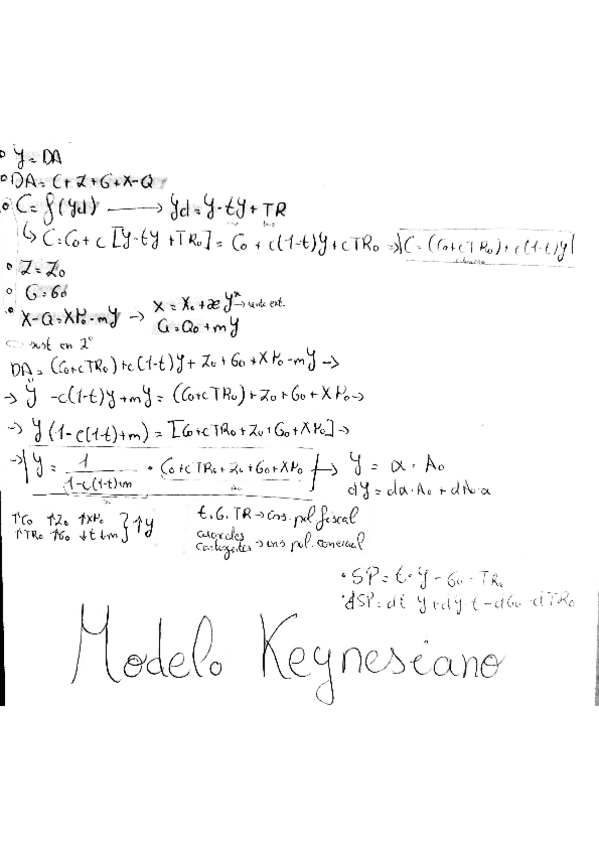 • Y = DA
• DA = C + I + G + X - Q
• C = f(Yd) → Yd = Y - tY + TR
↳ C = C₀ + c [Y - tY + TR₀] = C₀ + c(1-t)Y + cTR₀ ⇒ C = (C₀ + cTR₀) + c(1-t)Y
• I = I₀
• G = G₀
• X - Q = XN₀ - mY → X = X₀ + æY* → renta ext.
Q = Q₀ + mY
sust en 2º
DA = (C₀ + cTR₀) + c(1-t)Y + I₀ + G₀ + XN₀ - mY →
→ Y - c(1-t)Y + mY = (C₀ + cTR₀) + I₀ + G₀ + XN₀ →
→ Y (1 - c(1-t) + m) = [C₀ + cTR₀ + I₀ + G₀ + XN₀] →
→ Y = 1 / (1 - c(1-t) + m) · C₀ + cTR₀ + I₀ + G₀ + XN₀ → Y = α · A₀
dY = dα · A₀ + dA · α
↑C₀ ↑I₀ ↑XN₀
↑TR₀ ↑G₀ ↓t ↓m } ↑Y
t, G, TR → ins. pol fiscal
aranceles
contingentes → ins pol. comercial
• SP = t · Y - G₀ - TR₀
• dSP = dt · Y + dY · t - dG₀ - dTR₀
Modelo Keynesiano